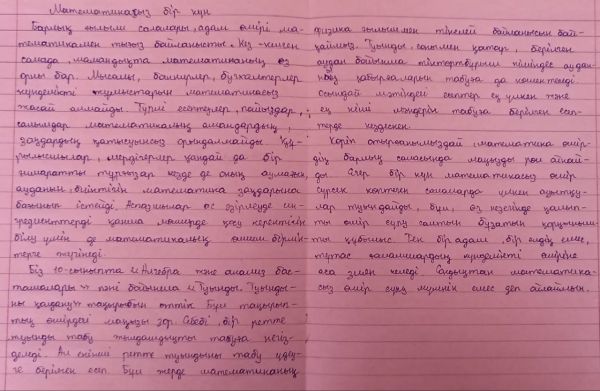 Математикасыз бір күн
Барлық ғылым салалары, адам өмірі ма-
тематикамен тығыз байланысты. Кез-келген
салада, мамандықта математиканың өз
орны бар. Мысалы, банкирлер, бухгалтерлер
күнделікті жұмыстарын математикасыз
жасай алмайды. Түрлі есептеулер, пайыздар,
салымдар математикалық амалдардың,
заңдардың қатысуынсыз орындалмайды. Құ-
рылысшылар, мердігерлер қандай да бір
ғимаратты тұрғызар кезде де оның аумағын,
ауданын, биіктігін математика заңдарына
бағынып істейді. Аспазшылар ас әзірлеуде ин-
гредиенттерді қанша мөлшерде қосу керектігін
білу үшін де математикалық өлшем бірлік-
терге жүгінеді.
Біз 10-сыныпта "Алгебра және анализ бас-
тамалары" пәні бойынша "Туынды. Туынды-
ны қолдану" тақырыбын өттік. Бұл тақырып-
тың өмірдегі маңызы зор. Себебі, бір ретте
туынды табу жылдамдықты табуға негіз-
делді. Ал екінші ретте туындыны табу үдеу-
ге берілген есеп. Бұл жерде математиканың
физика ғылымымен тікелей байланысын бай-
қаймыз. Туынды, сонымен қатар, берілген
аудан бойынша тіктөртбұрыш пішіндес аудан-
ның қабырғаларын табуға да көмектеседі.
Осындай мәтіндегі есептер ең үлкен және
ең кіші мәндерін табуға берілген есеп-
терде кездескен.
Көріп отырғанымыздай, математика өмір-
дің барлық саласында маңызды рөл атқай-
ды. Егер бір күн математикасыз өмір
сүрсек көптеген салаларда үлкен ауытқу-
лар туындайды, бұл, өз кезегінде қалып-
ты өмір сүру салтын бұзатын қорқынышы-
ты құбылыс. Тек бір адам, бір елдің емес,
тұтас қаламшардың күнделікті өміріне
аса зиян келеді. Сондықтан математика-
сыз өмір сүру мүмкін емес деп ойлаймын.